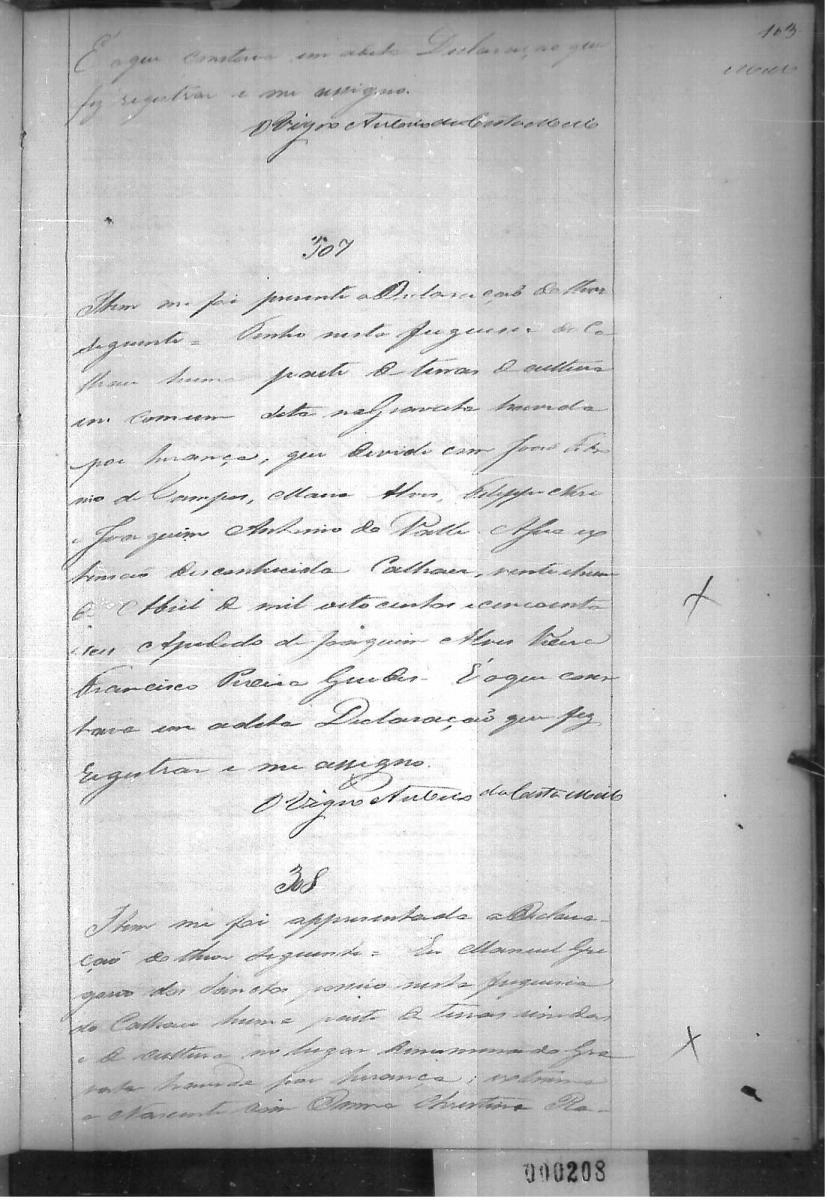 103
Mello
É o que constava em adita Declaração que
fez registrar e me assigno.
O Vigro Anterio da Costa Mello
307
Item me foi presente a Declaração do theor
seguinte = Tenho nesta freguesia do Ca
lhao huma parte de terras de cultura
em comum sita na Gravata havida
por herança, que divide com José
de Campos, Maria Alves, Felippe Neri
e Joaquim Antonio do Valle. Afua ex
tensaõ desconhecida Calhao, vinte e hum
de Abril de mil oito centos e cincoenta
e seis Apedido de Joaquim Alves Vieira
Francisco Pereira Guedes. É o que cons
tava em adita Declaração que fez
Registrar e me assigno.
O Vigro Anterio da Costa Mello
308
Item me foi appresentada a Declara-
çaõ do theor seguinte = Eu Manuel Gre
gorio dos Sanctos possuo nesta freguesia
do Calhao huma parte de terras unidas
e de cultura no lugar denominado Gra
vata havida por herança; extrema
a Nascente com Donna Christina Ra-
000208